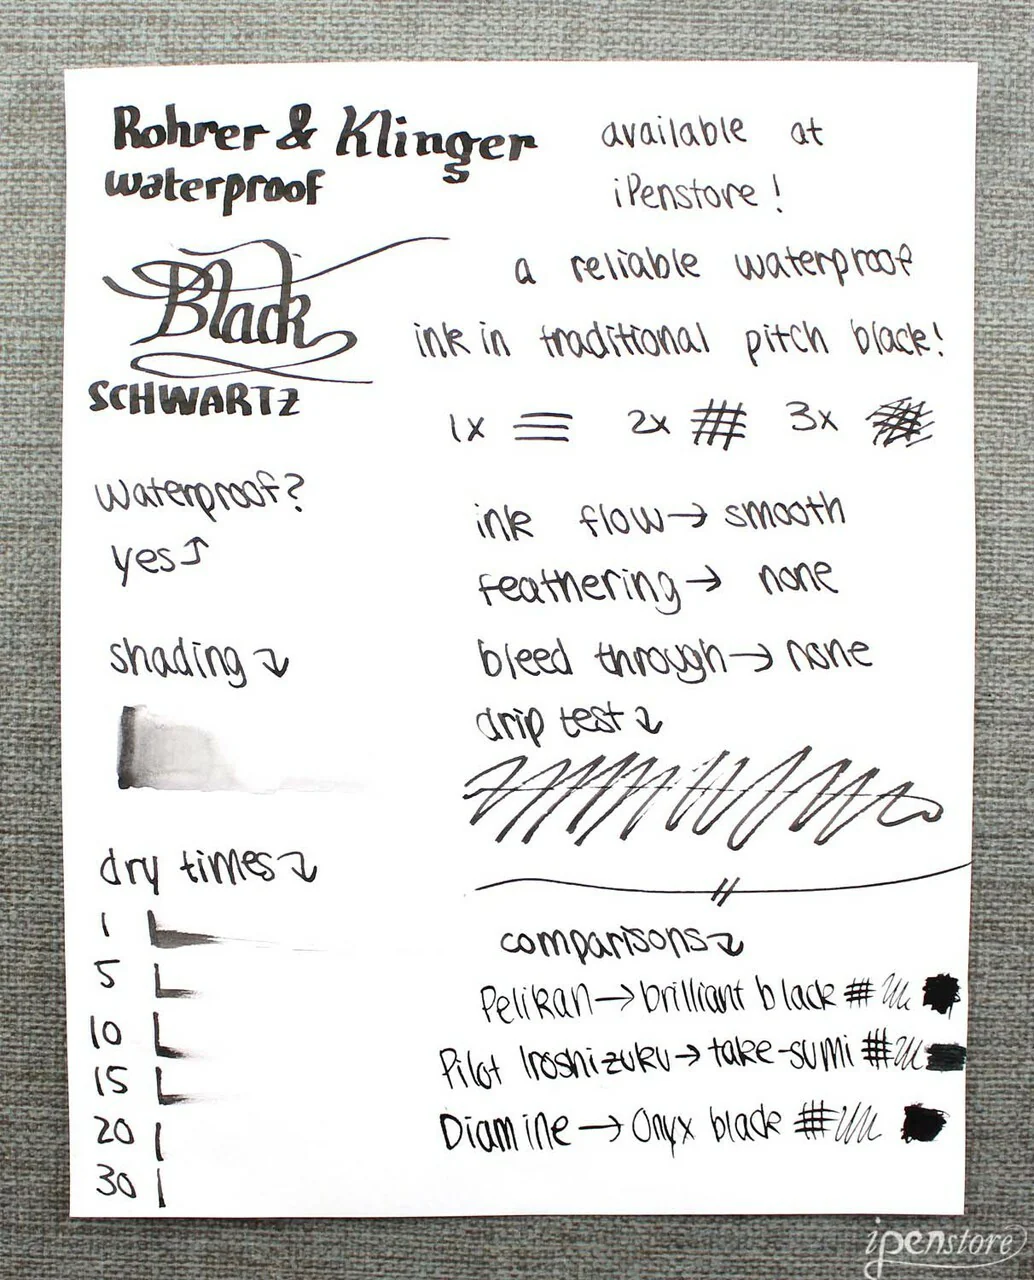 Rohrer & Klinger
waterproof
Black
SCHWARTZ
available at
iPenstore!
a reliable waterproof
ink in traditional pitch black!
1x 2x 3x
waterproof?
yes
shading
dry times
1
5
10
15
20
30
ink flow → smooth
feathering → none
bleed through → none
drip test
comparisons
Pelikan → brilliant black
Pilot Iroshizuku → take-sumi
Diamine → Onyx black
ipenstore